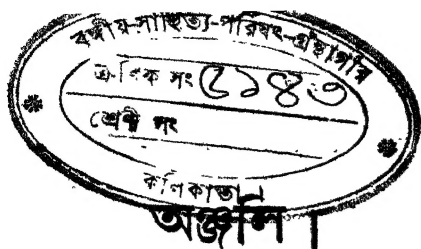 বঙ্গীয়-সাহিত্য-পরিষৎ-গ্রন্থাগার
ক্রমিক সং ৫১৪৩
শ্রেণী সং
কলিকাতা।
অঞ্জলি।